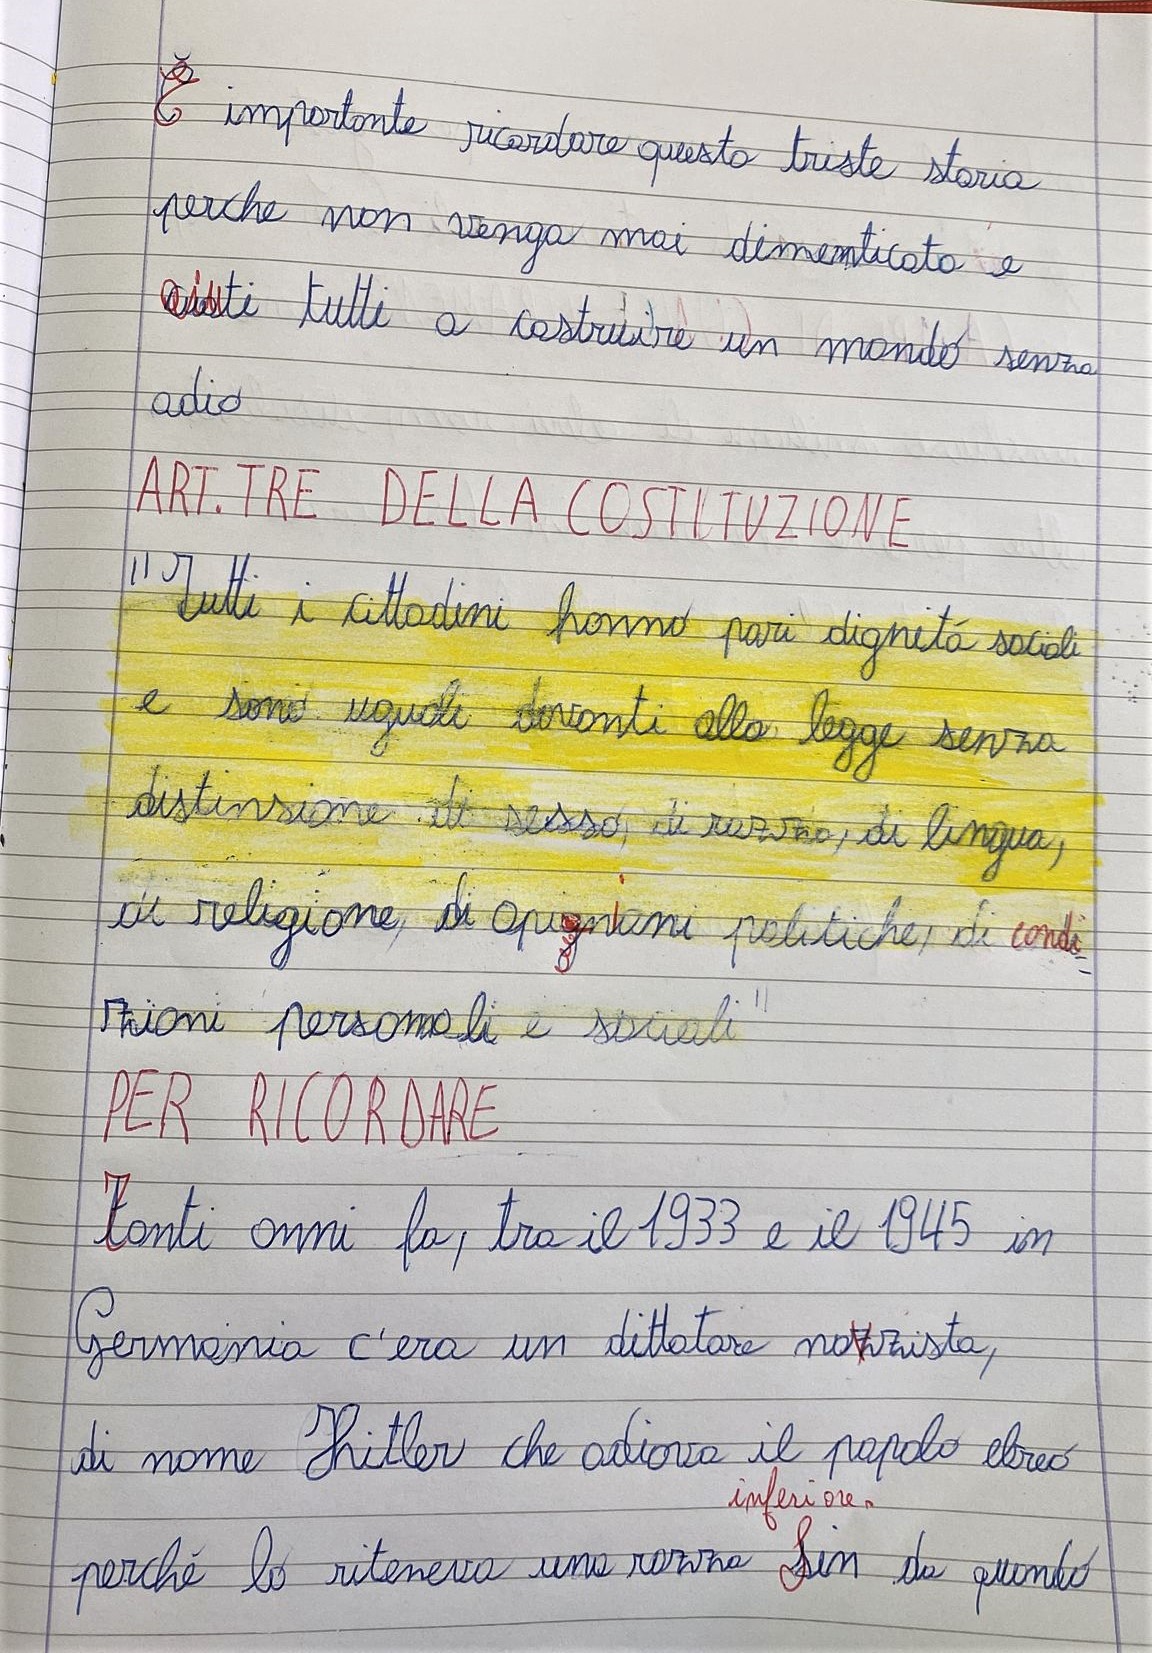 È importante ricordare questa triste storia
perche non venga mai dimenticata e
aiuti tutti a costruire un mondo senza
odio
ART. TRE DELLA COSTITUZIONE
"Tutti i cittadini hanno pari dignitá sociali
e sono uguali davanti alla legge senza
distinsione di sesso, di razza, di lingua,
di religione, di opignioni politiche, di condi-
zioni personali e sociali"
PER RICORDARE
Tanti anni fa, tra il 1933 e il 1945 in
Germania c'era un dittatore nazzista,
di nome Hitler che odiava il popolo ebreo
inferiore.
perché lo riteneva una razza Sin da quando